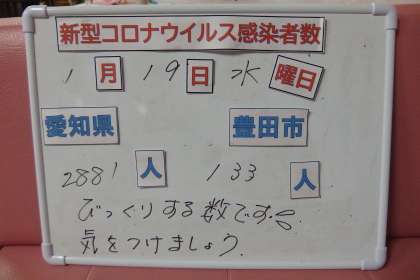 新型コロナウイルス感染者数
1月19日水曜日
愛知県 豊田市
2881人 133人
びっくりする数です。
気をつけましょう。